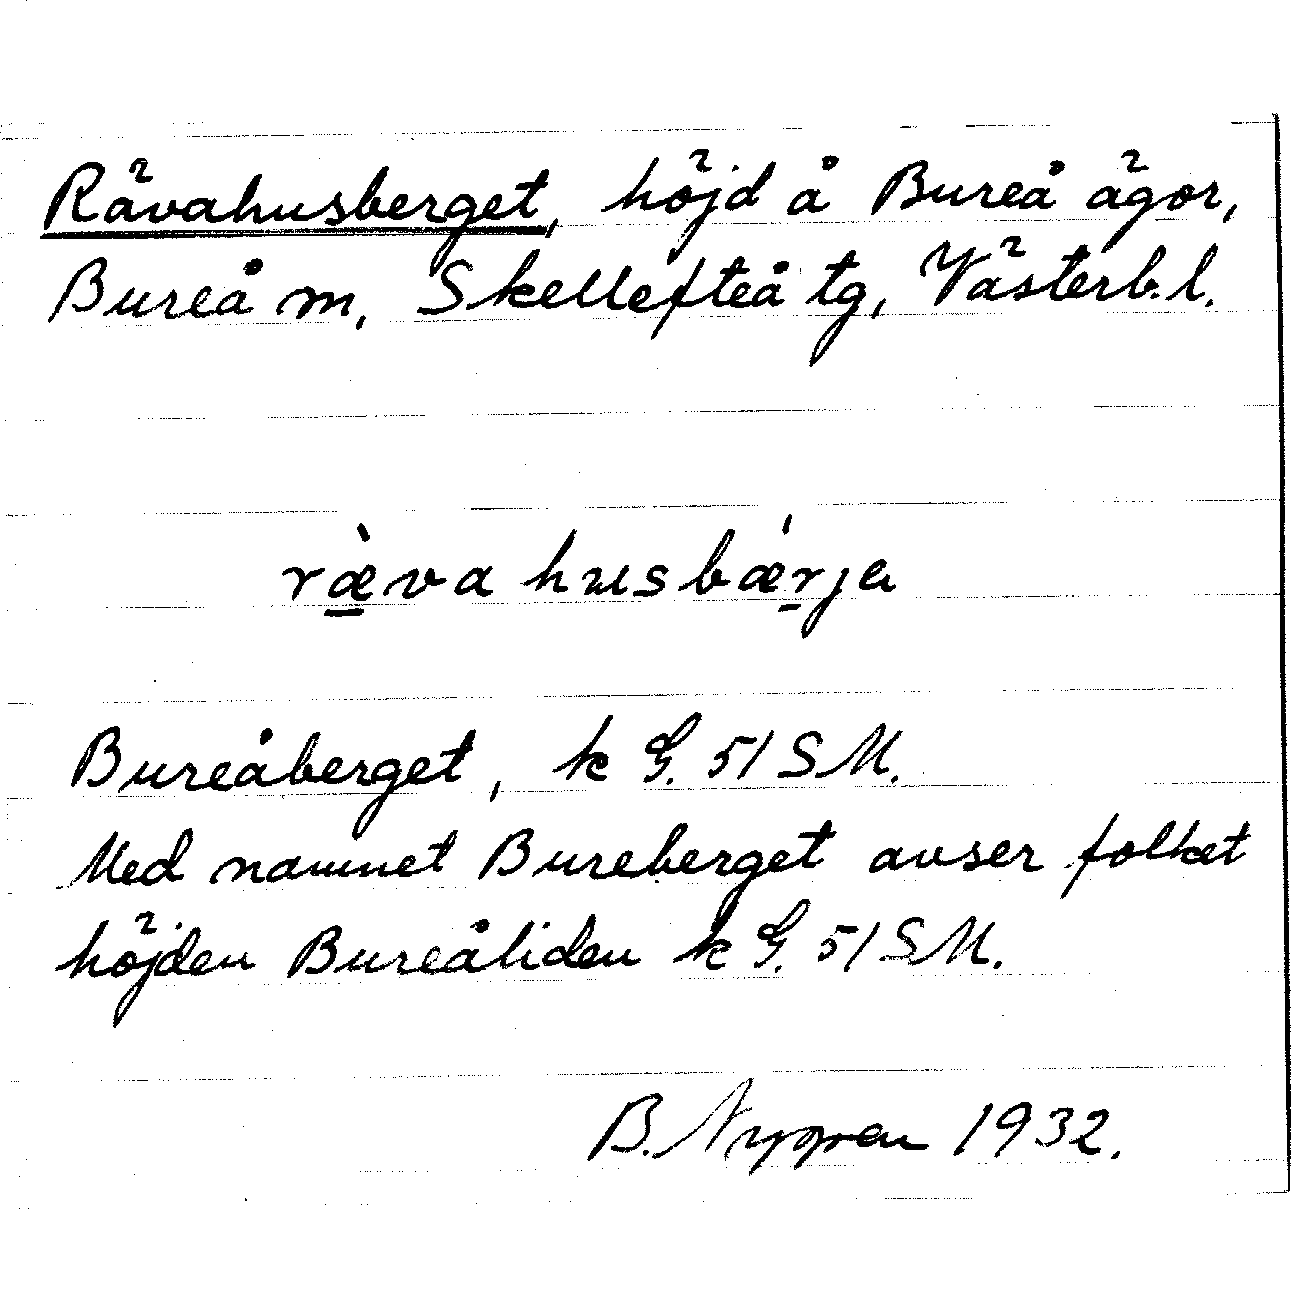 Rävahusberget, höjd å Bureå ägor,
Bureå m, Skellefteå tg, Västerb.l.
ræ̀vahusbǽrja
Bureåberget, k G. 51 SM.
Med namnet Bureberget avser folket
höjden Bureåliden k G. 51 SM.
B. Nygren 1932.